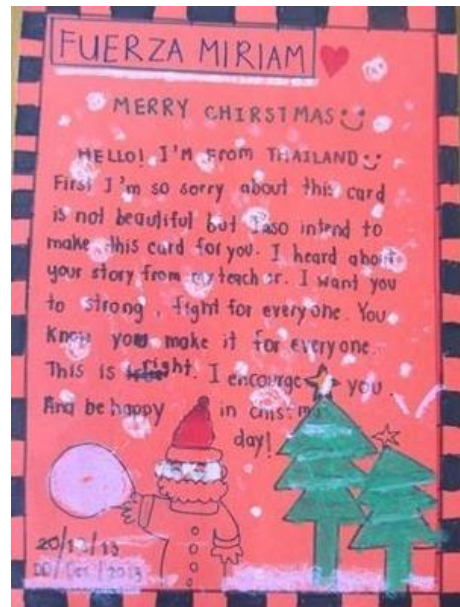 FUERZA MIRIAM
MERRY CHIRSTMAS
HELLO! I'M From THAILAND
First I'm so sorry about this card
is not beautiful but I so intend to
make this card for you. I heard about
your story from my teacher. I want you
to strong, fight for everyone. You
Know you make it for everyone.
This is right. I encourge you.
And be happy in
day!
20/12/13
Dec / 2013